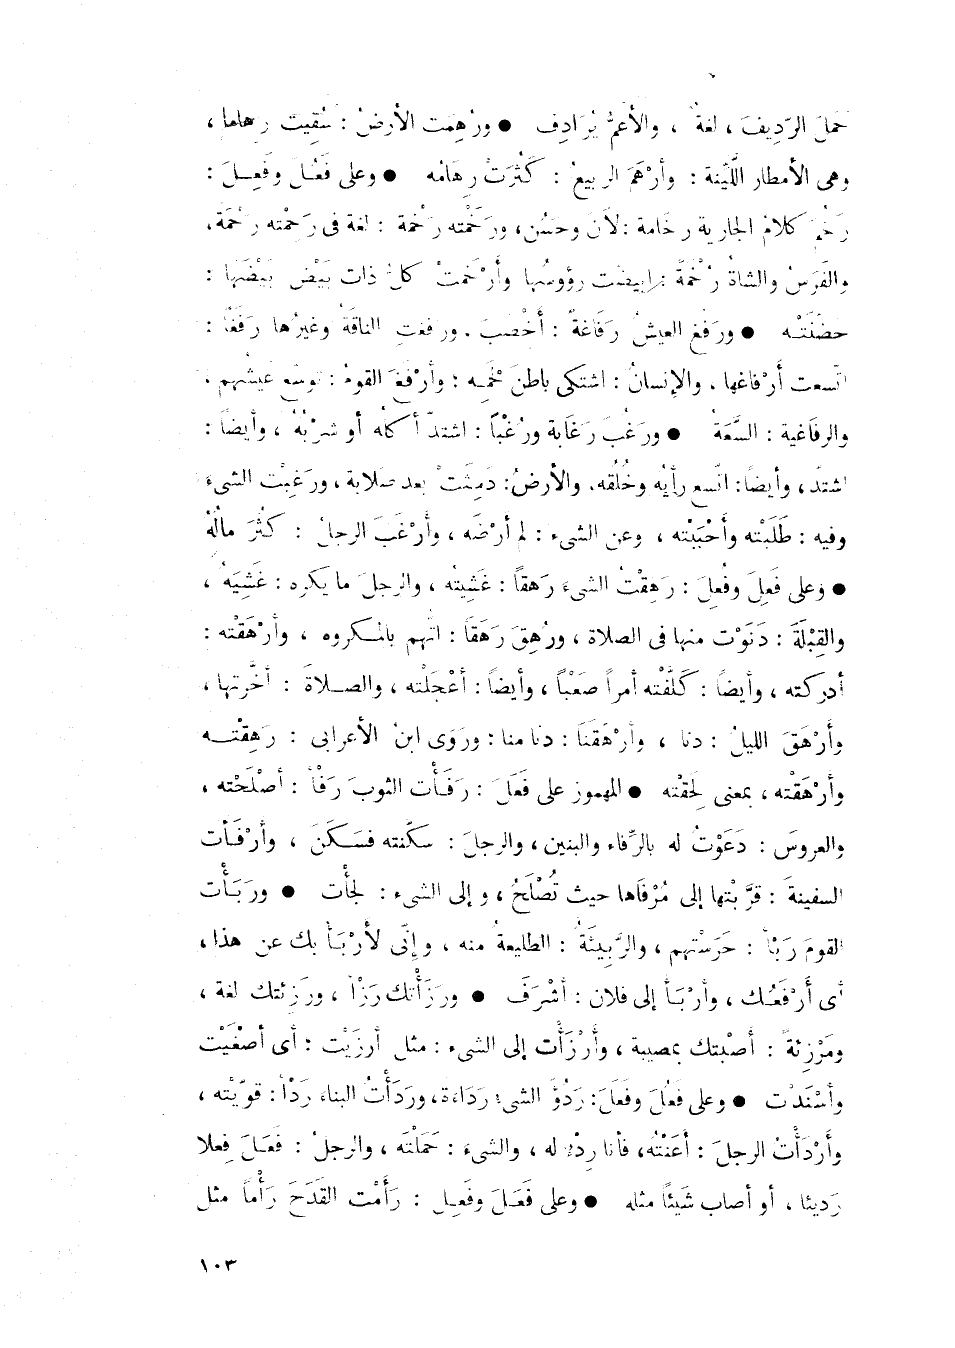 حَمَلَ الرّدِيفَ ، لغةٌ ، والأعمُّ يُرَادِف ● ورُهِمَت الأرضُ : سُقِيَت رِهَاما ،
وهى الأمطار اللَّيِّنة : وأَرْهَمَ الربيعُ : كَثُرَتْ رِهَامُه ● وعلى فَعُل وفَعِلَ :
رَخُمَ كلامُ الجارية رخَامة : لاَنَ وحَسُن، ورَخَمْته رَخْمة : لغة فى رَحِمْته رَحْمَة،
والفَرَسُ والشاةُ رُخْمَةً : ابيضت رؤوسُها وأَرْخَمتْ كلُّ ذات بَيْض بَيْضَها :
حضَنَتْه ● ورَفُغ العيشُ رَفَاغةً : أَخْصَبَ . ورفغت الناقةُ وغيرُها رَفَغًا :
اتّسعت أَرْفاغها . والإنسانُ : اشتكى باطنَ فَخِذه : وأَرْفَغَ القومُ : توسّع عيشُهم .
والرفَاغية : السَّعَةُ ● ورَغُبَ رَغَابة ورُغْبًا : اشتدّ أكلُه أو شرْبُهُ ، وأيضًا :
اشتدّ ، وأيضًا : اتّسع رأيُه وخُلُقه . والأرضُ : دَمِثَتْ بعد صلابة ، ورَغِبْت الشىءَ
وفيه : طَلَبْته وأَحْبَبْته ، وعن الشىء : لم أَرْضَه ، وأَرْغَبَ الرجلُ : كَثُرَ مالُهُ
● وعلى فَعِلَ وفُعِلَ : رَهِقْتُ الشىءَ رَهقاً : غَشِيتُه ، والرجلَ ما يكره : غَشِيَهُ ،
والقِبْلَةَ : دَنَوْت منها فى الصلاة ، ورُهِقَ رَهَقاً : اتُّهم بالمكروه ، وأَرْهَقْته :
أدركته ، وأيضاً : كَلَّفْته أمراً صَعْباً ، وأيضاً : أَعْجَلْته ، والصلاةَ : أَخَّرتها ،
وأَرْهَقَ الليلُ : دنا ، وأَرْهَقَنَا : دنا منا : ورَوَى ابنُ الأعرابى : رَهِقْته
وأَرْهَقْته ، بمعنى لَحِقْته ● المهموز على فَعَلَ : رَفَأْت الثوبَ رَفْأً : أَصْلَحْته ،
والعروسَ : دَعَوْتُ له بالرِّفاء والبنين ، والرجلَ : سكّنته فسَكَنَ ، وأَرْفَأت
السفينةَ : قرَّبْتها إلى مُرْفَاها حيث تُصْلَحُ ، وإلى الشىء : لجأْت ● ورَبَأْت
القومَ رَبْأً : حَرَسْتهم ، والرَّبِيئَةُ : الطليعةُ منه ، وإنّى لأَرْبَأُ بك عن هذا ،
أى أَرْفَعُك ، وأَرْبَأ إلى فلان : أَشْرَفَ ● ورَزَأْتك رَزْأً ، ورَزِئتك لغة ،
ومَرْزِئةً : أَصْبتك بمصيبة ، وأَرْزَأْت إلى الشىء : مثل أرزَيْت : أى أَصْغَيْت
وأَسْنَدْت ● وعلى فَعُلَ وفَعَلَ : رَدُؤَ الشىءُ رَدَاءَة ، ورَدَأْتُ البناءَ رَدْأً : قوّيْته ،
وأَرْدَأْتُ الرجلَ : أَعَنْتُه، فأنا رِدْءٌ له ، والشىءَ : حَمَلْتَه ، والرجلُ : فَعَلَ فِعلا
رَديئا ، أو أصاب شَيئًا مثله ● وعلى فَعَلَ وفَعِل : رَأَمْت القَدَحَ رَأْماً مثل
١٠٣